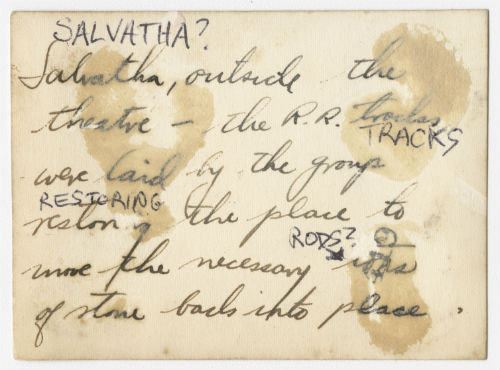 SALVATHA?
Salvatha, outside the
theatre – the R.R. tracks
TRACKS
were laid by the group
RESTORING
restoring the place to
RODS?
move the necessary
of stone back into place.